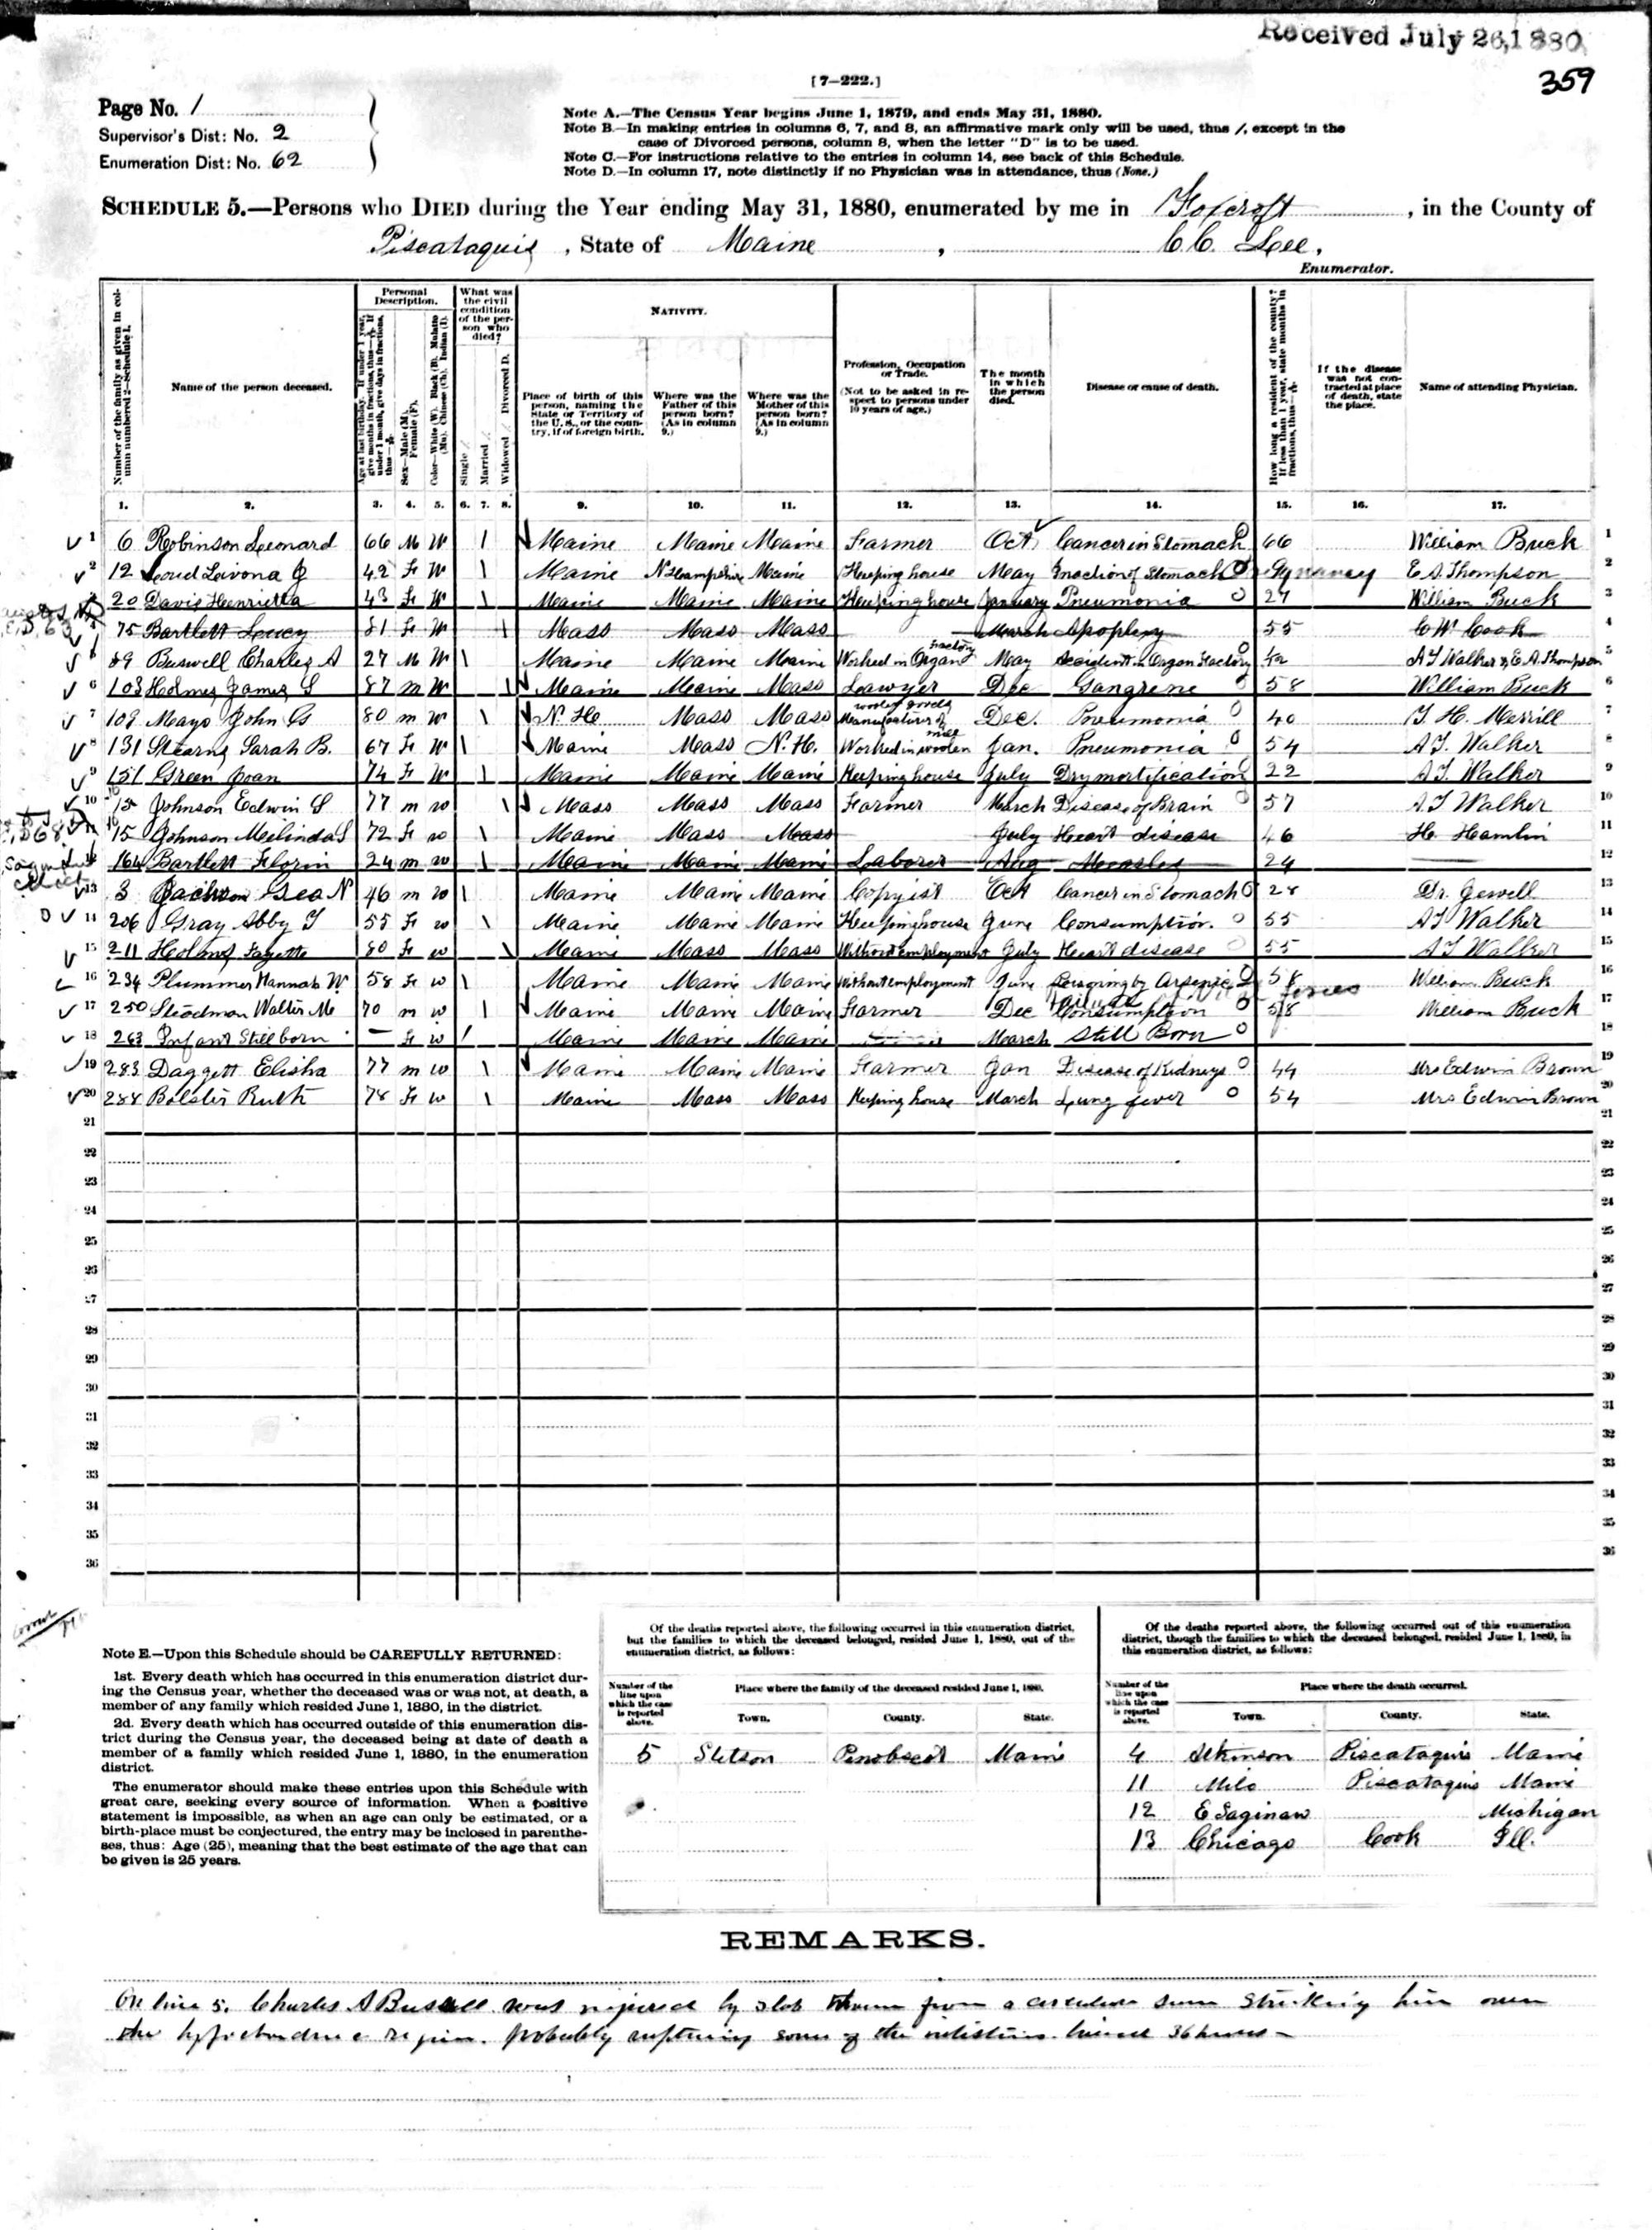 Received July 26, 1880
359
[7-222.]
Page No. 1
Supervisor's Dist: No. 2
Enumeration Dist: No. 62
Note A.—The Census Year begins June 1, 1879, and ends May 31, 1880.
Note B.—In making entries in columns 6, 7, and 8, an affirmative mark only will be used, thus /, except in the
case of Divorced persons, column 8, when the letter "D" is to be used.
Note C.—For instructions relative to the entries in column 14, see back of this Schedule.
Note D.—In column 17, note distinctly if no Physician was in attendance, thus (None.)
SCHEDULE 5.—Persons who DIED during the Year ending May 31, 1880, enumerated by me in Foxcroft, in the County of
Piscataquis, State of Maine, C.C. Lee,
Enumerator.
Number of the family as given in column numbered 2—Schedule 1.
Name of the person deceased.
Personal Description.
Age at last birthday. If under 1 year, give months in fractions, thus— If under 1 month, give days in fractions, thus—
Sex—Male (M), Female (F).
Color—White (W), Black (B), Mulatto (Mu), Chinese (Ch), Indian (I).
What was the civil condition of the person who died?
Single /
Married /
Widowed / Divorced D.
NATIVITY.
Place of birth of this person, naming the State or Territory of the U.S., or the country, if of foreign birth.
Where was the Father of this person born? (As in column 9.)
Where was the Mother of this person born? (As in column 9.)
Profession, Occupation or Trade. (Not to be asked in respect to persons under 10 years of age.)
The month in which the person died.
Disease or cause of death.
How long a resident of the county? If less than 1 year, state months in fractions, thus—
If the disease was not contracted at place of death, state the place.
Name of attending Physician.
1. 2. 3. 4. 5. 6. 7. 8. 9. 10. 11. 12. 13. 14. 15. 16. 17.
1 6 Robinson Leonard 66 M W / Maine Maine Maine Farmer Oct Cancer in Stomach 66 William Buck 1
2 12 Loud Leivona J 42 F W / Maine N Hampshire Maine Keeping house May Inaction of Stomach E A Thompson 2
20 Davis Henrietta 43 F W / Maine Maine Maine Keeping house January Pneumonia 27 William Buck 3
75 Bartlett Lucy 81 F W / Mass Mass Mass March Apoplexy 55 C W Cook 4
89 Buswell Charles A 27 M W / Maine Maine Maine Worked in Organ factory May Accident in Organ Factory 42 A T Walker & E. A. Thompson 5
6 103 Holmes James S 87 m W / Maine Maine Mass Lawyer Dec Gangrene 58 William Buck 6
7 109 Mayo John G 80 m w / N. H Mass Mass Manufacturer of woolen goods Dec. Pneumonia 40 T. H. Merrill 7
8 131 Stearns Sarah B. 67 F W / Maine Mass N.H. Worked in woolen mill Jan. Pneumonia 54 A T. Walker 8
9 151 Green Joan 74 F W / Maine Maine Maine Keeping house July Dry mortification 22 A T. Walker 9
10 15 Johnson Edwin S 77 m w / Mass Mass Mass Farmer March Disease of Brain 57 A. T Walker 10
11 15 Johnson Melinda S 72 F w / Maine Mass Mass July Heart disease 46 H. Hamlin 11
164 Bartlett Florin 24 m w / Maine Maine Maine Laborer Aug Measles 24 12
13 3 46 m w / Maine Maine Maine Copyist Oct Cancer in Stomach 28 Dr. Jewell 13
14 206 Gray Abby T 55 F w / Maine Maine Maine Keeping house June Consumption. 55 A T Walker 14
15 211 Holmes Fayette 80 F w / Maine Mass Mass Without employment July Heart disease 55 A T Walker 15
16 234 Plummer Hannah W. 58 F w / Maine Maine Maine Without employment June Poisoning by Arsenic 58 William Buck 16
17 250 Stedman Walter M 70 m w / Maine Maine Maine Farmer Dec Consumption 58 William Buck 17
18 263 Infant Stillborn — F w / Maine Maine Maine March Still Born 18
19 283 Daggett Elisha 77 m w / Maine Maine Maine Farmer Jan Disease of Kidneys 44 Mrs Edwin Brown 19
20 288 Bolster Ruth 78 F w / Maine Mass Mass Keeping house March Lung fever 54 Mrs Edwin Brown 20
21 21
22 22
23 23
24 24
25 25
26 26
27 27
28 28
29 29
30 30
31 31
32 32
33 33
34 34
35 35
36 36
Note E.—Upon this Schedule should be CAREFULLY RETURNED:
1st. Every death which has occurred in this enumeration district dur-
ing the Census year, whether the deceased was or was not, at death, a
member of any family which resided June 1, 1880, in the district.
2d. Every death which has occurred outside of this enumeration dis-
trict during the Census year, the deceased being at date of death a
member of a family which resided June 1, 1880, in the enumeration
district.
The enumerator should make these entries upon this Schedule with
great care, seeking every source of information. When a positive
statement is impossible, as when an age can only be estimated, or a
birth-place must be conjectured, the entry may be inclosed in parenthe-
ses, thus: Age (25), meaning that the best estimate of the age that can
be given is 25 years.
Of the deaths reported above, the following occurred in this enumeration district,
but the families to which the deceased belonged, resided June 1, 1880, out of the
enumeration district, as follows:
Number of the line upon which the case is reported above.
Place where the family of the deceased resided June 1, 1880.
Town. County. State.
5 Stetson Penobscot Maine
Of the deaths reported above, the following occurred out of this enumeration
district, though the families to which the deceased belonged, resided June 1, 1880, in
this enumeration district, as follows:
Number of the line upon which the case is reported above.
Place where the death occurred.
Town. County. State.
4 Atkinson Piscataquis Maine
11 Milo Piscataquis Maine
12 E Saginaw Michigan
13 Chicago Cook Ill.
REMARKS.
On line 5. Charles A Buswell was injured by slab thrown from a circular saw striking him over
the hypochondriac region. probably rupturing some of the intestines. lived 36 hours—